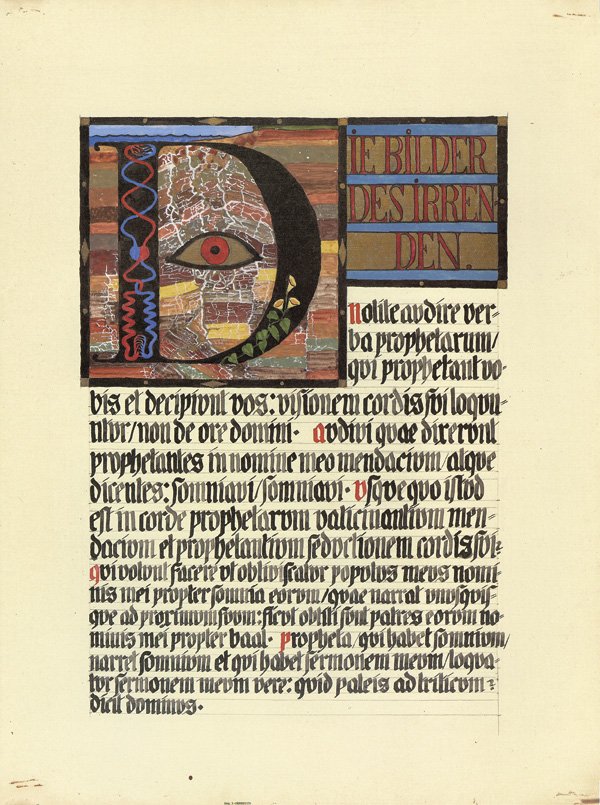 DIE BILDER
DES IRREN
DEN.
nolite audire ver=
ba prophetarum/
qui prophetant vo=
bis et decipiunt vos: visionem cordis sui loquu=
ntur/ non de ore domini. audivi quae dixerunt
prophetantes in nomine meo mendacium/ atque
dicentes: somniavi/ somniavi. usque quo istud
est in corde prophetarum vaticinantium men=
dacium et prophetantium seductionem cordis sui.
qui volunt facere ut obliviscatur populus meus nomi=
nis mei propter somnia eorum/ quae narrat unusquis=
que ad proximum suum: sicut obliti sunt patres eorum no=
minis mei propter baal. propheta/ qui habet somnium/
narret somnium et qui habet sermonem meum/ loqua=
tur sermonem meum vere: quid paleis ad triticum?
dicit dominus.